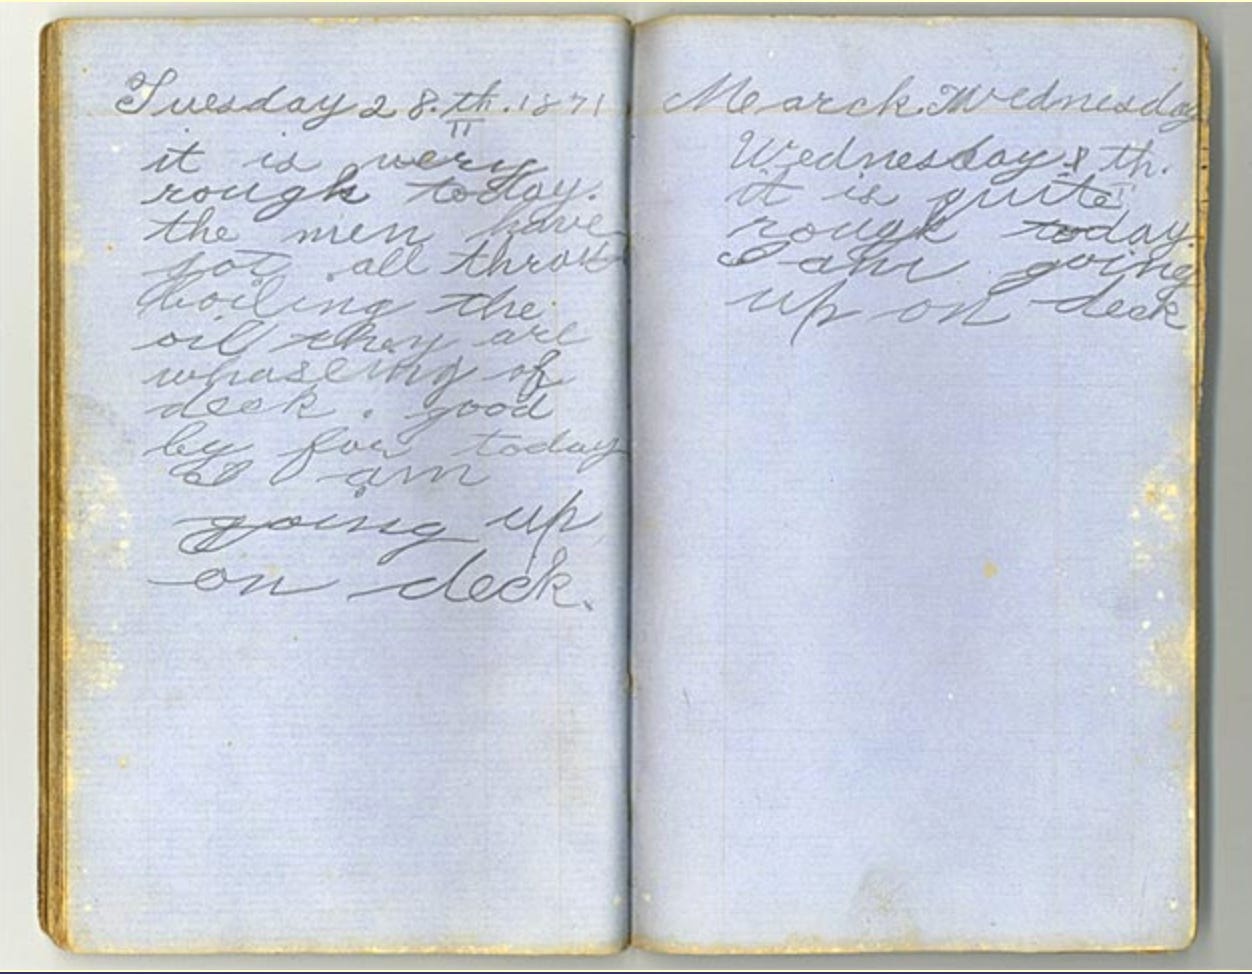 Tuesday 28.th.1871
it is very
rough today.
the men have
got all throu
boiling the
oil they are
whaseing of
deck. good
by for today
I am
going up
on deck.
March. Wednesday
Wednesday 8 th.
it is quite
rough today.
I am going
up on deck